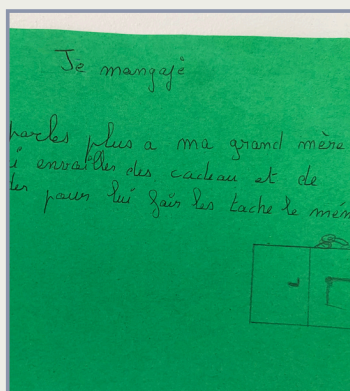 Je mangajé
parles plus a ma grand mère
i envailles des cadeau et de
der pour lui fair les tache le mén